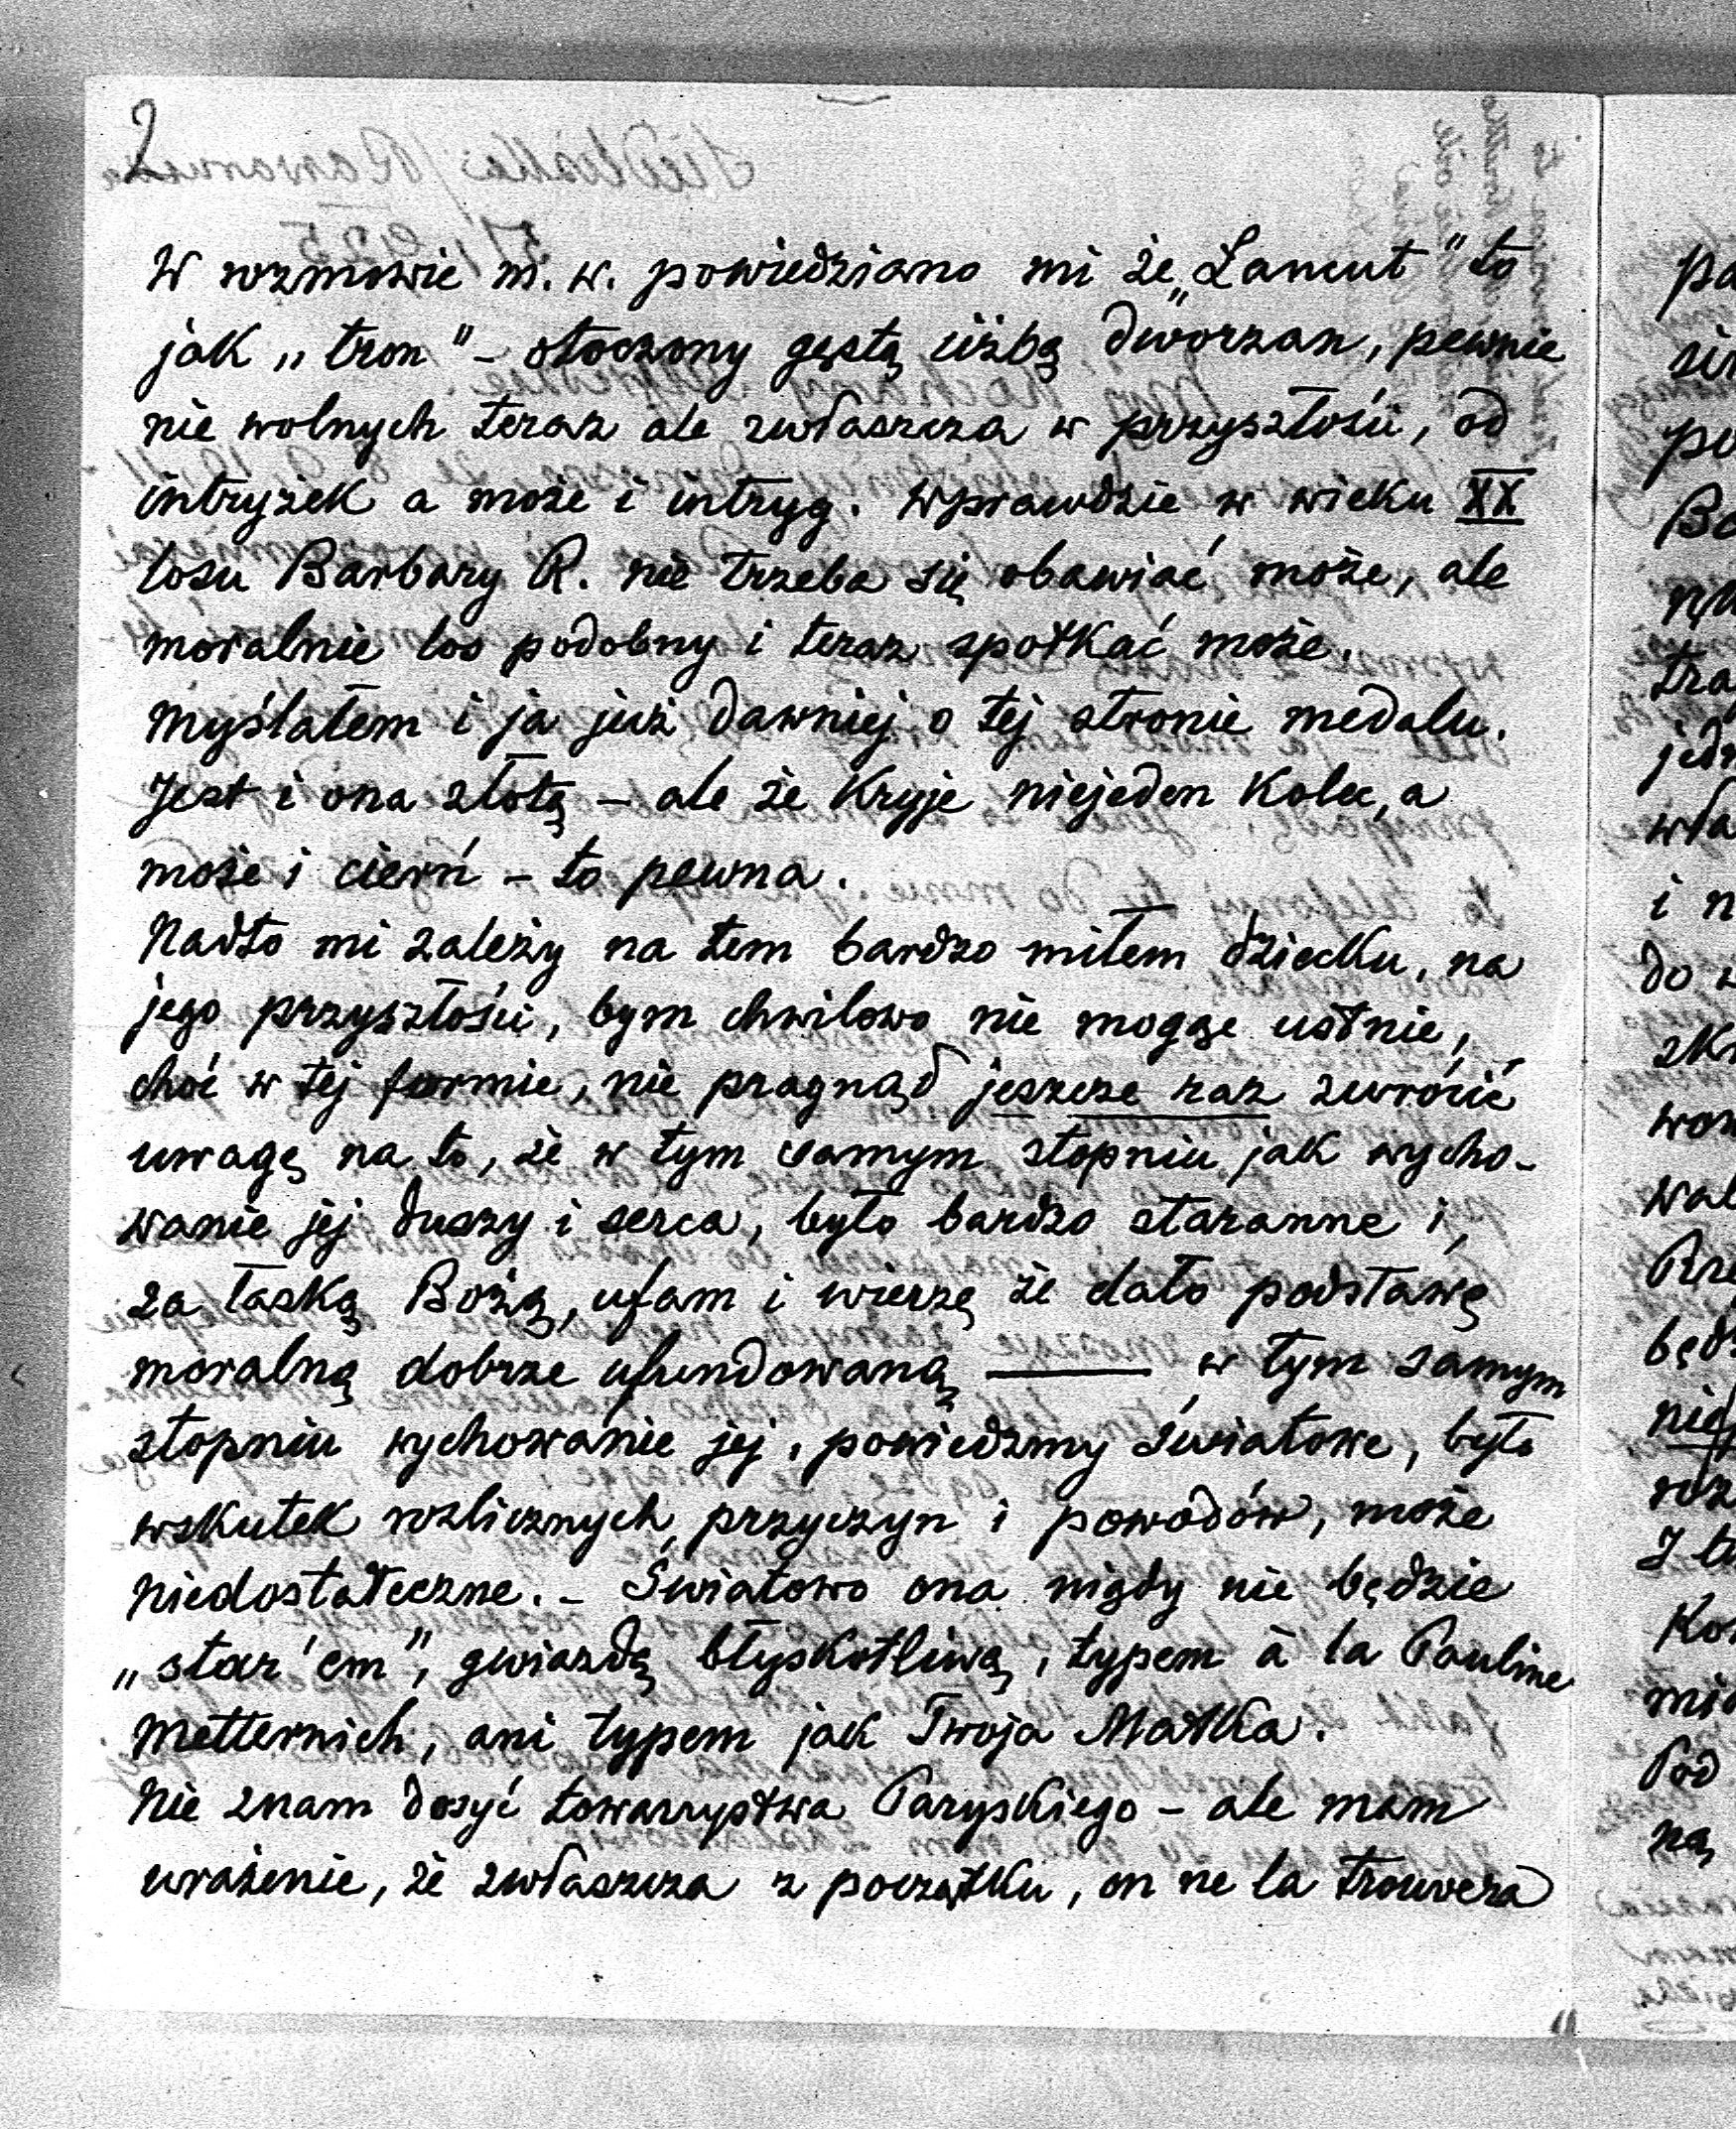 2
W rozmowie m. w. powiedziano mi że „Łancut" to
jak „tron" – otoczony gęstą ciżbą dworzan, pewnie
nie wolnych teraz ale zwłaszcza w przyszłości, od
intryżek a może i intryg. Wprawdzie w wieku XX
losu Barbary R. nie trzeba się obawiać może, ale
moralnie los podobny i teraz spotkać może.
Myślałem i ja już dawniej o tej stronie medalu.
Jest i ona złotą – ale że kryje niejeden kolec, a
może i cierń – to pewna.
Nadto mi zależy na tem bardzo miłem dziecku, na
jego przyszłości, bym chwilowo nie mogąc ustnie,
choć w tej formie, nie pragnął jeszcze raz zwrócić
uwagę na to, że w tym samym stopniu jak wycho-
wanie jej duszy i serca, było bardzo staranne i,
za łaską Bożą, ufam i wierzę że dało podstawę
moralną dobrze ufundowaną —— w tym samym
stopniu wychowanie jej, powiedzmy światowe, było
wskutek rozlicznych przyczyn i powodów, może
niedostateczne. – Światowo ona nigdy nie będzie
„star'em", gwiazdą błyskotliwą, typem à la Pauline
Metternich, ani typem jak Twoja Matka.
Nie znam dosyć towarzystwa Paryskiego – ale mam
wrażenie, że zwłaszcza z początku, on ne la trouvera